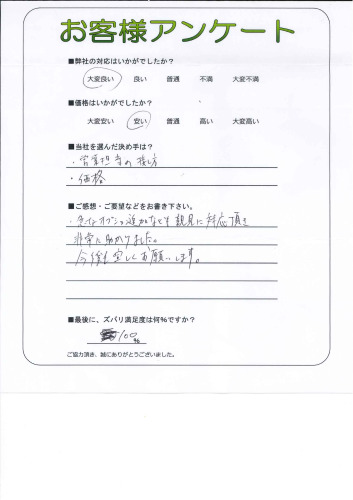 お客様アンケート
■弊社の対応はいかがでしたか?
大変良い 良い 普通 不満 大変不満
■価格はいかがでしたか?
大変安い 安い 普通 高い 大変高い
■当社を選んだ決め手は?
・営業担当の接し方
・価格
■ご感想・ご要望などをお書き下さい。
・急なオプション追加なども親身に対応頂き
非常に助かりました。
今後も宜しくお願いします。
■最後に、ズバリ満足度は何%ですか?
100%
ご協力頂き、誠にありがとうございました。